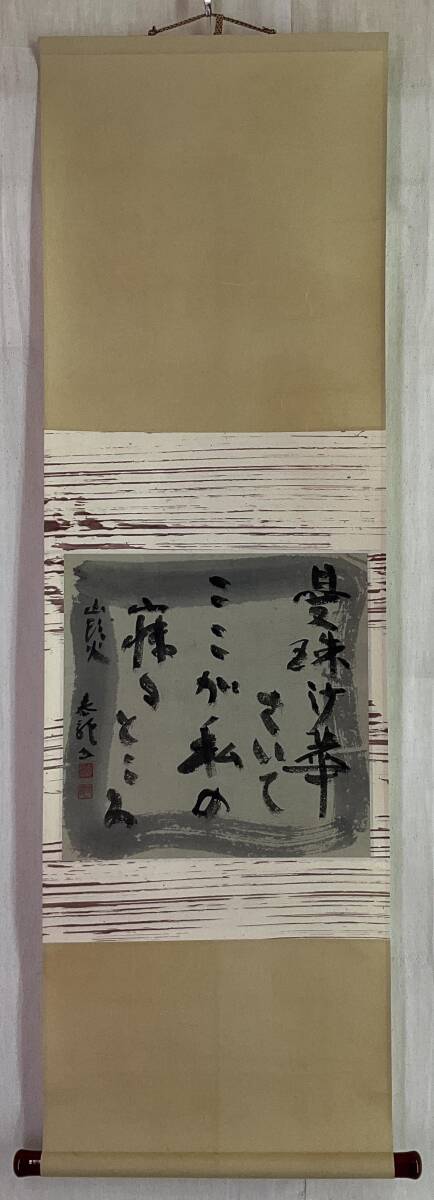 曼珠沙華
さいて
ここが私の
寐るところ
山頭火